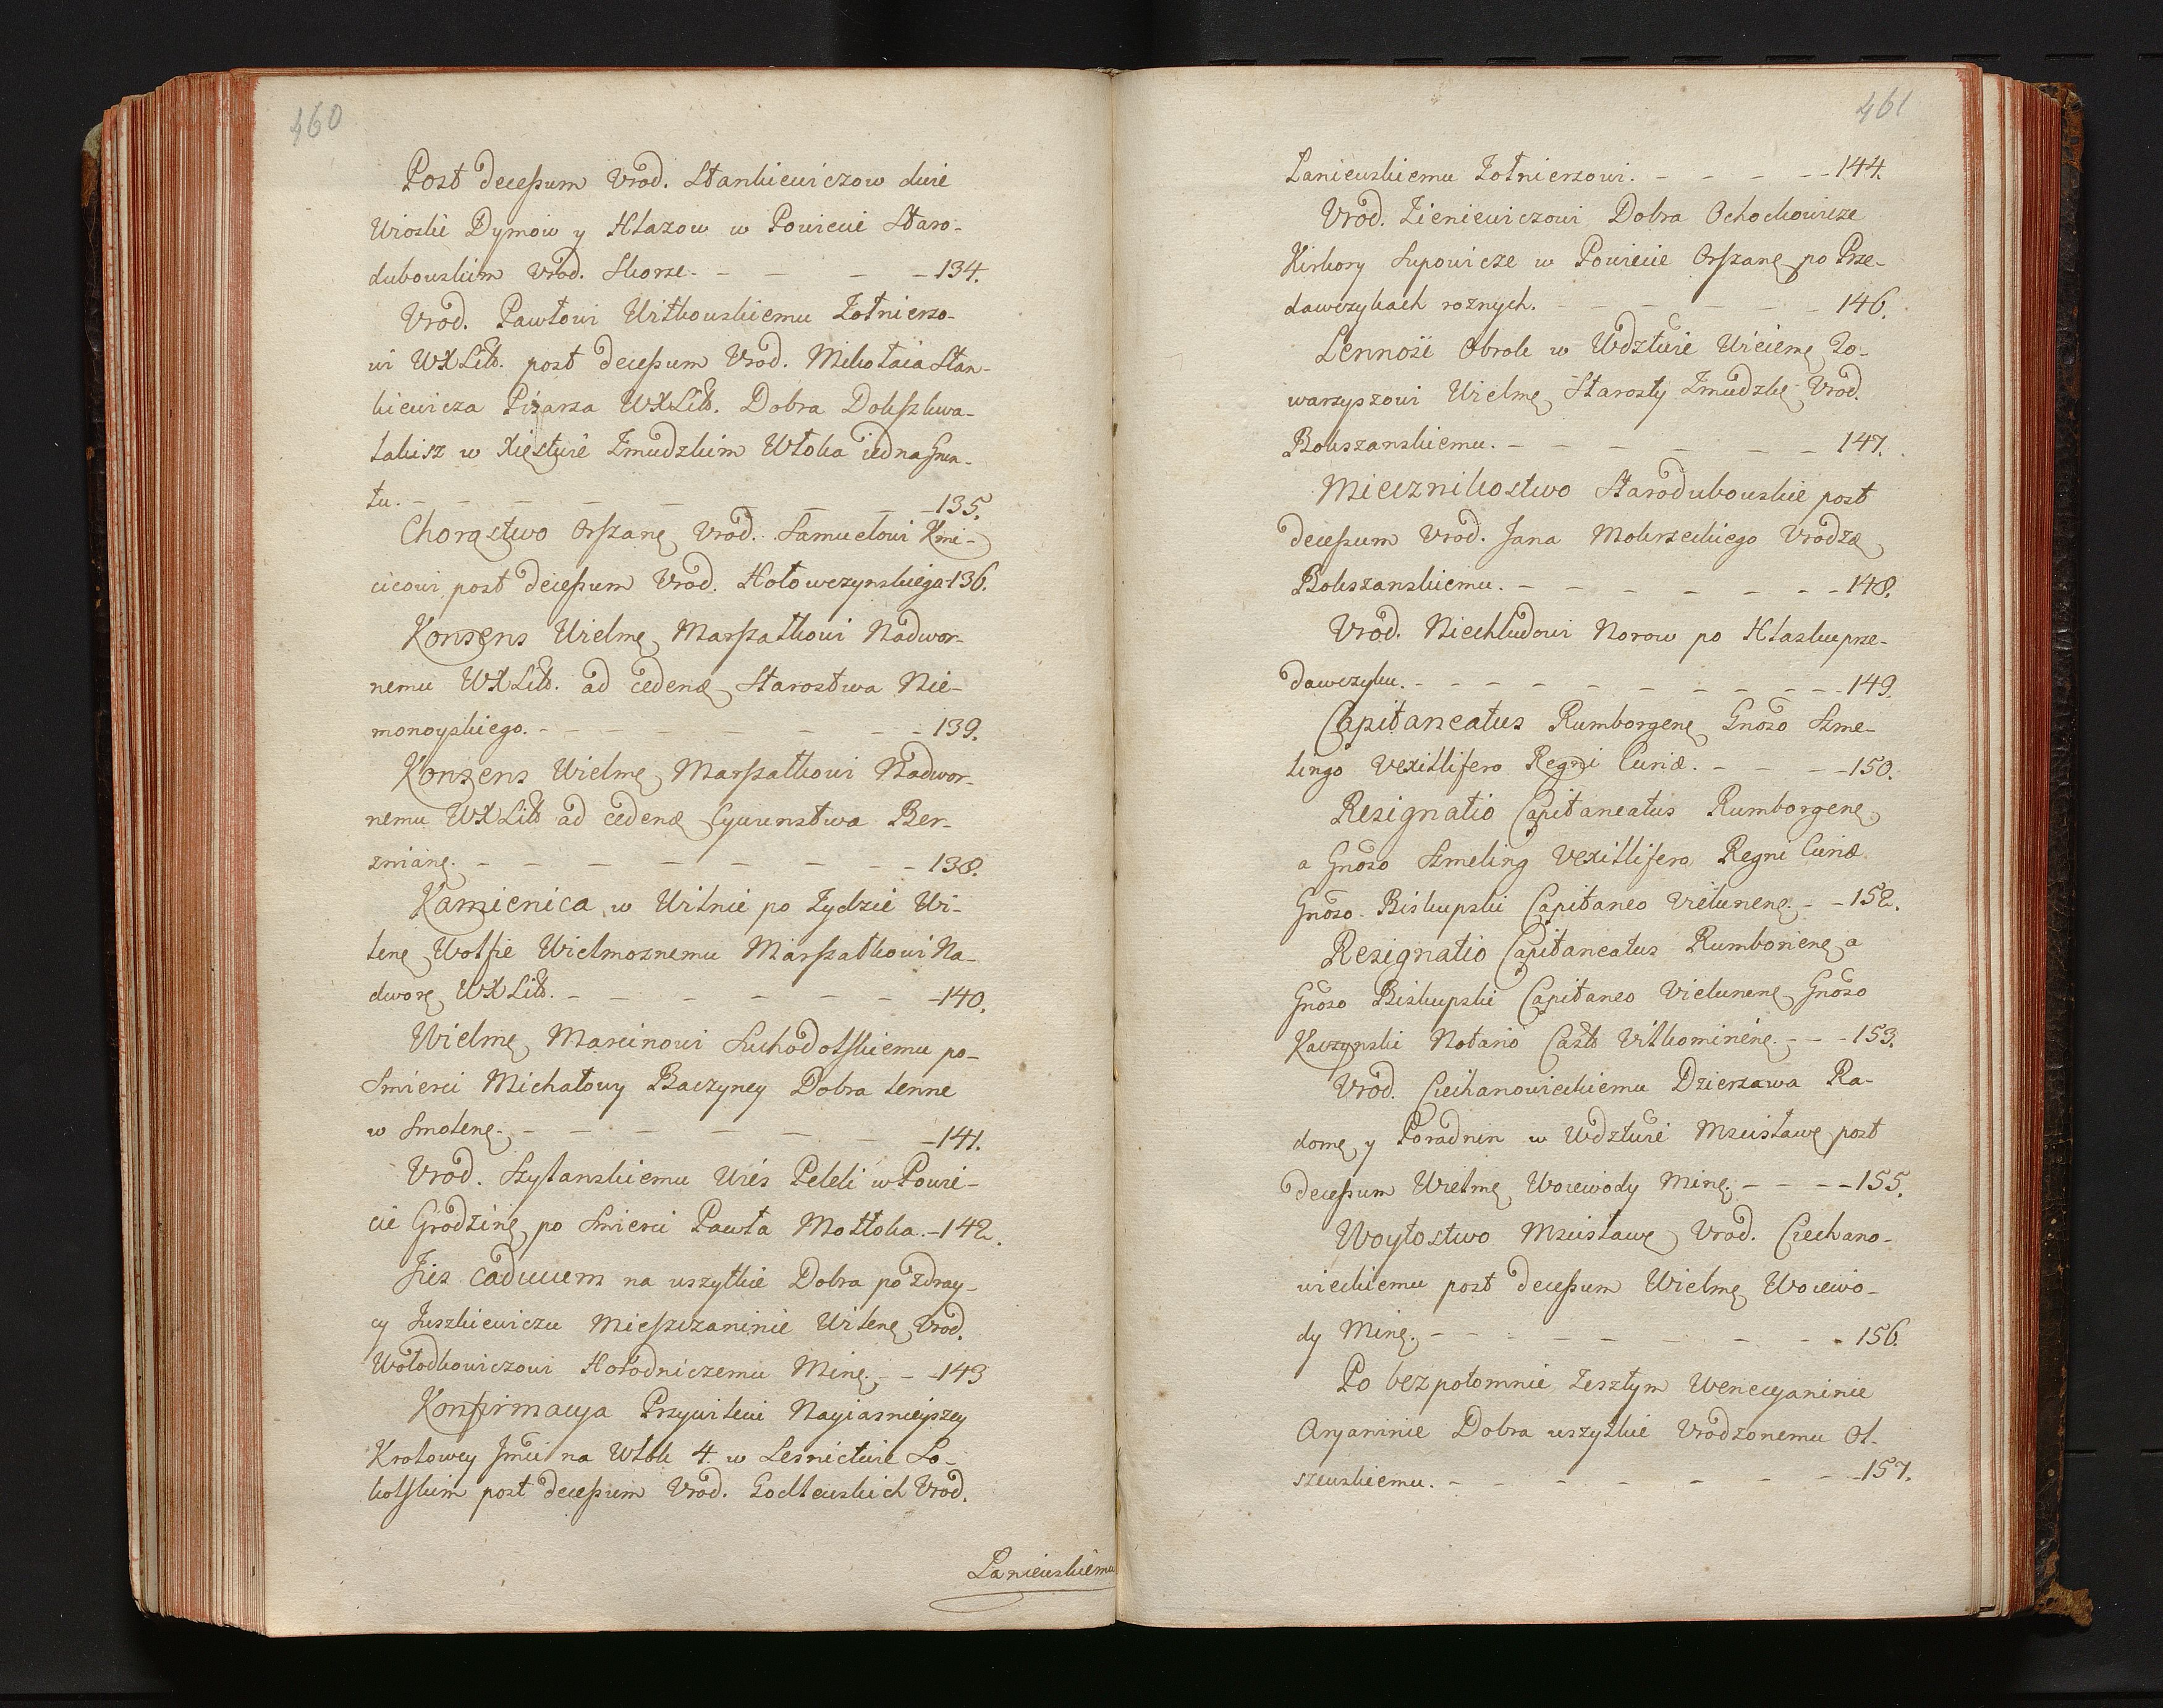 460
Post decessum Vrod. Stankiewiczow dwie
Wioski Dymow y Hlazow w Powiecie Staro-
dubowskim Vrod. Skorze. - - - - 134.
Vrod. Pawłowi Witkowskiemu Zołnierzo-
wi WXLitt. post decessum Vrod. Mikołaia Stan-
kiewicza Pisarza WXLitt. Dobra
w Xięstwie Zmudzkim Włoka iedna Grun-
tu. - - - - - - - 135.
Chorąstwo Orszanę Vrod. Samuelowi Kmi-
cicowi post decessum Vrod. Hołowczynskiego 136.
Konsens Wielmę Marszałkowi Nadwor-
nemu WXLitt. ad cedenđ Starostwa Nie-
monoyskiego. - - - - - - - 139.
Konsens Wielmę Marszałkowi Nadwor-
nemu WXLitt ad cedenđ Cywunstwa Ber-
znianę. - - - - - - - 138.
Kamienica w Wilnie po Zydzie Wi-
lenę Wolfie Wielmoznemu Marszałkowi Na-
dworę WXLitt. - - - - - - 140.
Wielmę Marcinowi Suchodolskiemu po-
Smierci Michałowy Baczyney Dobra lenne
w Smolenę. - - - - - - 141.
Vrod. Szylanskiemu Wies Peleli w Powie-
cie Grodzinę po Smierci Pawła Mottoka. - 142.
Jus caducum na wszytkie Dobra po zdray-
cy Juszkiewiczu Miesszczaninie Wilenę Vrod.
Wołodkowiczowi Horodniczemu Minę. - - 143
Konfirmacya Przywileiu Nayiasnieyszey
Krolowey Jmci na Włok 4. w Lesnictwie So-
kolskim post decessum Vrod. Godlewskich Vrod.
Laniewskiemu
461
Laniewskiemu Zołnierzowi. - - - - 144.
Vrod. Zieniewiczowi Dobra Ochochowicze
Kirkory Supowicze w Powiecie Orszanę po Prze-
dawczykach roznych. - - - - - 146.
Lennosci Obrok w Wdztwie Wiciemę To-
warzyszowi Wielmę Starosty Zmudzkę Vrod.
Bokszanskiemu. - - - - - - 147.
Miecznikostwo Starodubowskie post
decessum Vrod. Jana Mokrzeckiego Vrodzo
Bokszanskiemu. - - - - - - - 148.
Vrod. Niechludowi Norow po Hlasku prze-
dawczyku. - - - - - - - - - 149.
Capitaneatus Rumborgenę Gnoso Szme-
lingo Vexillifero Regni Curiæ. - - - 150.
Resignatio Capitaneatus Rumborgenę
a Gnoso Szmeling Vexillifero Regni Curiæ
Gnoso Biskupski Capitaneo Vielunenę. - - 152.
Resignatio Capitaneatus Rumborienę a
Gnoso Biskupski Capitaneo Vielunenę Gnoso
Kaczynski Notario Castr Vilkominenę. - - - 153.
Vrod. Ciechanowieckiemu Dzierzawa Ra-
domę y Poradnin w Wdztwie Mscisławę post
decessum Wielmę Woiewody Minę. - - - - 155.
Woytostwo Mscisławę Vrod. Ciechano-
wieckiemu post decessum Wielmę Woiewo-
dy Minę. - - - - - - - - - 156.
Po bezpotomnie Zeszłym Wenecyaninie
Aryaninie Dobra wszytkie Vrodzonemu Ol-
szewskiemu. - - - - - - - 157.